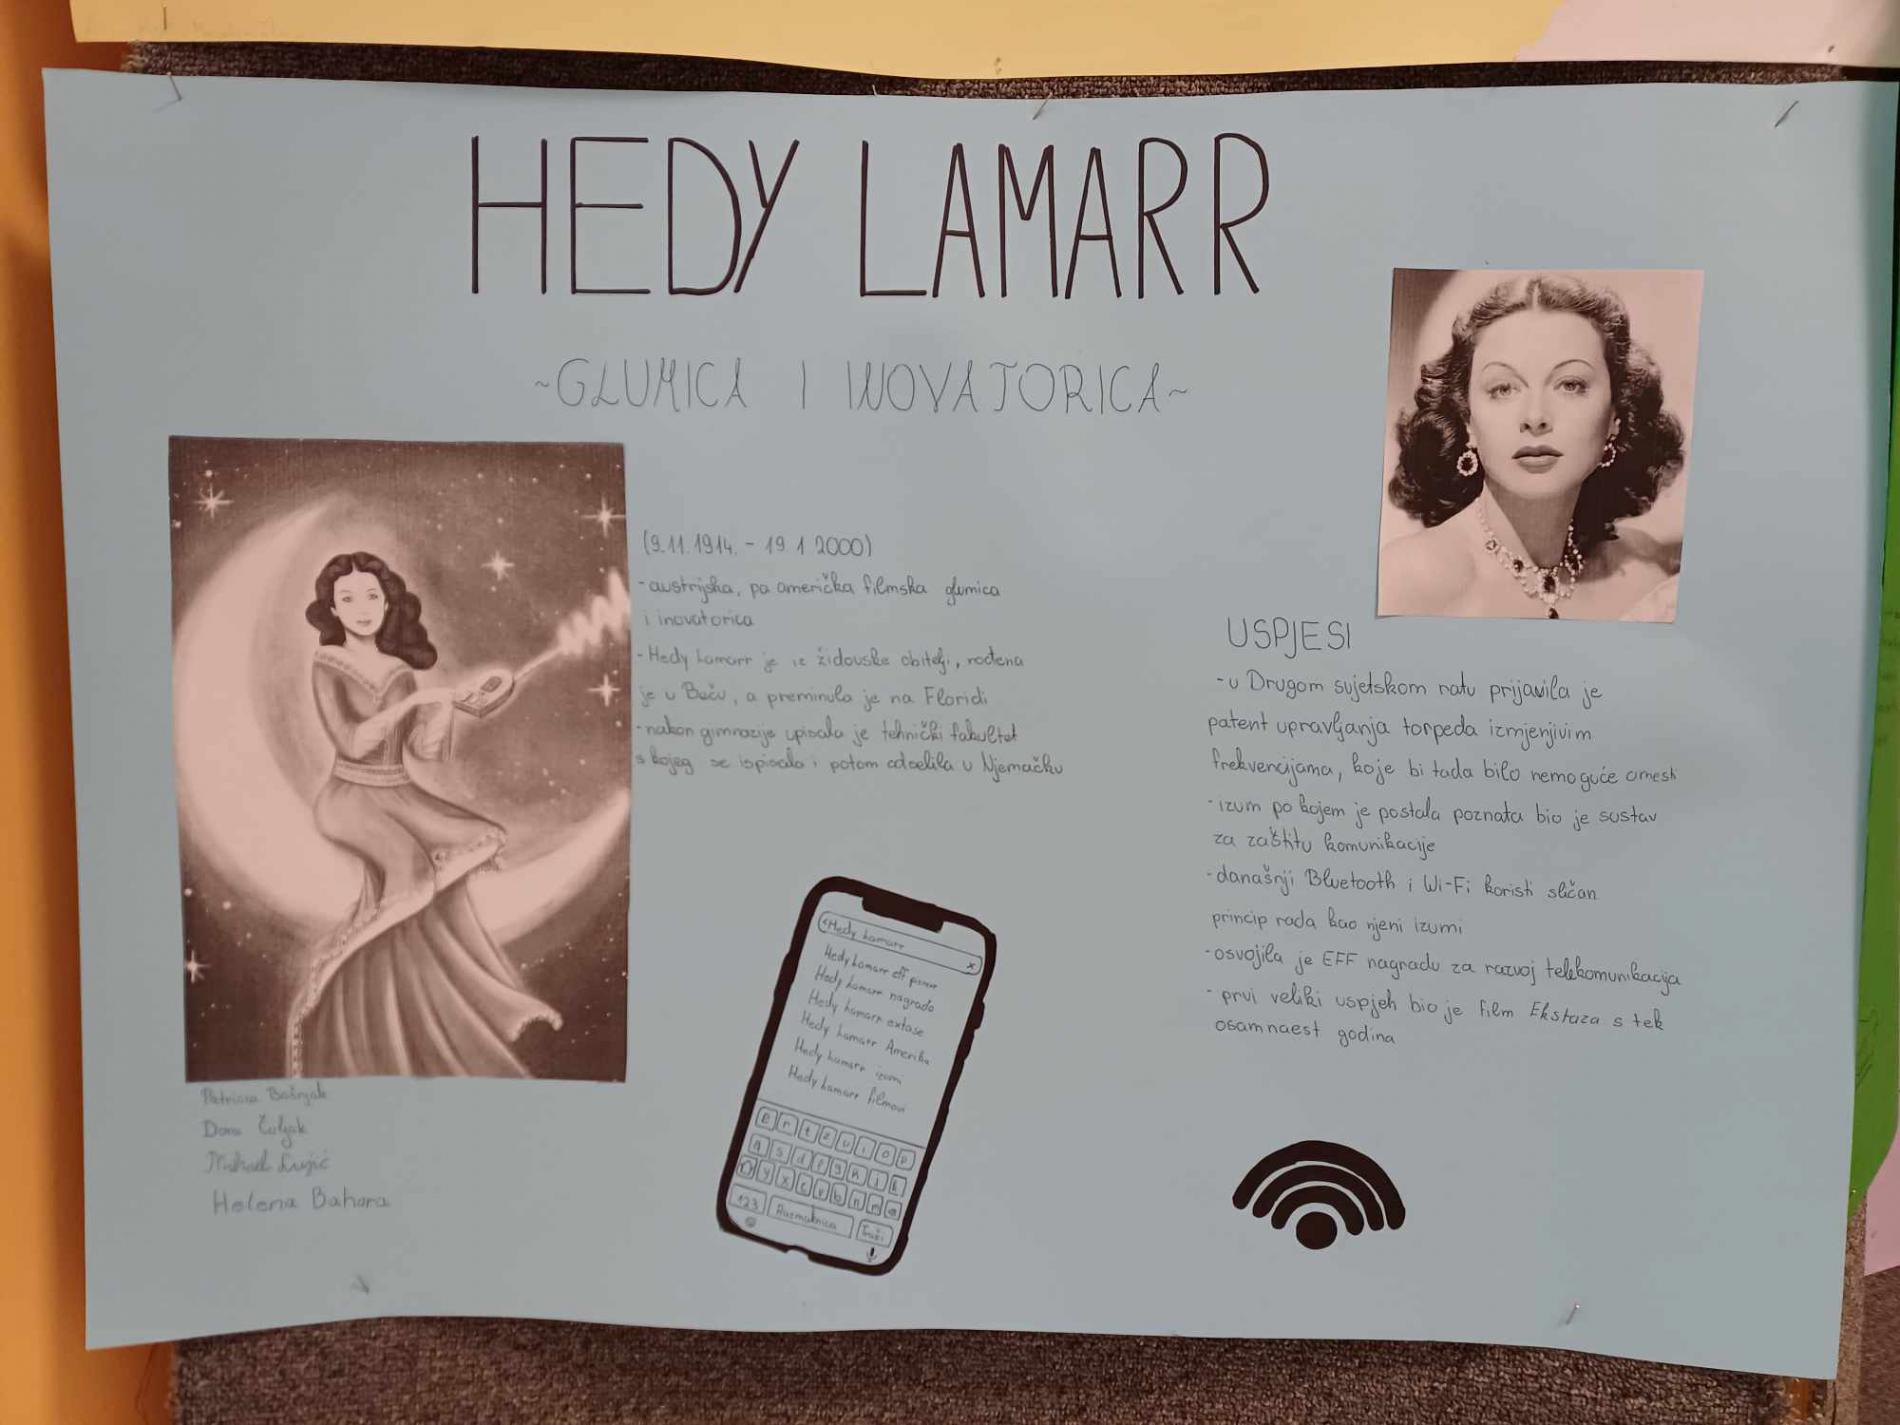 HEDY LAMARR
~GLUMICA I INOVATORICA~
(9.11.1914. - 19.1.2000)
- austrijska, pa američka filmska glumica
i inovatorica
- Hedy Lamarr je iz židovske obitelji, rođena
je u Beču, a preminula je na Floridi
- nakon gimnazije upisala je tehnički fakultet
s kojeg se ispisala i potom odselila u Njemačku
USPJESI
- u Drugom svjetskom ratu prijavila je
patent upravljanja torpeda izmjenjivim
frekvencijama, koje bi tada bilo nemoguće omesti
- izum po kojem je postala poznata bio je sustav
za zaštitu komunikacije
- današnji Bluetooth i Wi-Fi koristi sličan
princip rada kao njeni izumi
- osvojila je EFF nagradu za razvoj telekomunikacija
- prvi veliki uspjeh bio je film Ekstaza s tek
osamnaest godina
<Hedy Lamarr x
Hedy Lamarr eff
Hedy Lamarr nagrada
Hedy Lamarr extase
Hedy Lamarr Amerika
Hedy Lamarr izumi
Hedy Lamarr filmovi
e r t z u i o p
a s d f g h j k
y x c v b n m
123 Razmaknica Traži
Patricia Bošnjak
Dora Čuljak
Mihael
Helena Bahora